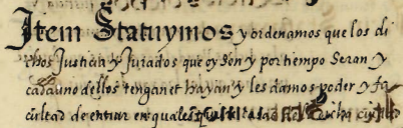 Item Statuymos y ordenamos que los di
chos Justicia y Jurados que oy son y por tiempo Seran y
cadauno dellos tengan et hayan y les damos poder y fa
cultad de entrar en quales